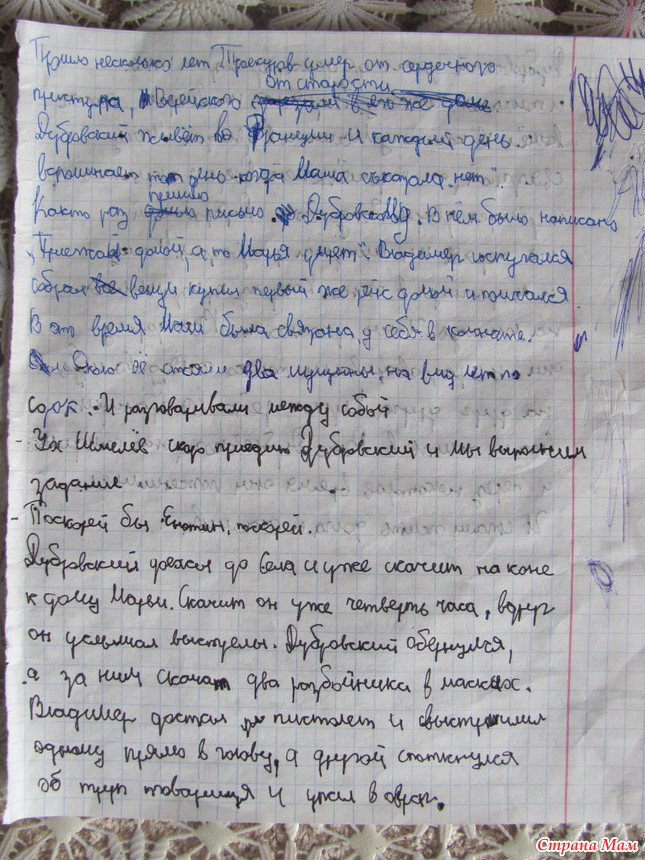 Прошло несколько лет Троекуров умер от сердечного
от старости
приступа, Верейского
Дубровский живёт во Франции и каждый день
вспоминает тот день когда Маша сказала „нет".
пришло
Както раз письмо Дубровскому. В нём было написано
„Приежай домой, а то Марья умрёт" Владимер
собрал вещи купил первый же рейс домой и
В это время Маши была связана, у себя в комнате.
Около её стояли два мущины, на вид лет по
сорок. И разговаривали между собой
- Ух Шмелёв скор приедит Дубровский и мы выполним
задание
- Поскорей бы Енотин, поскорей.
Дубровский доехал до села и уже скачит на коне
к дому Марьи. Скачит он уже четверть часа, вдруг
он услышал выстрелы. Дубровский обернулся,
а за ним скачат два разбойника в масках.
Владимер достал пистолет и выстрелил
одному прямо в голову, а другой споткнулся
об труп товарища и упал в овраг.
Страна Мам